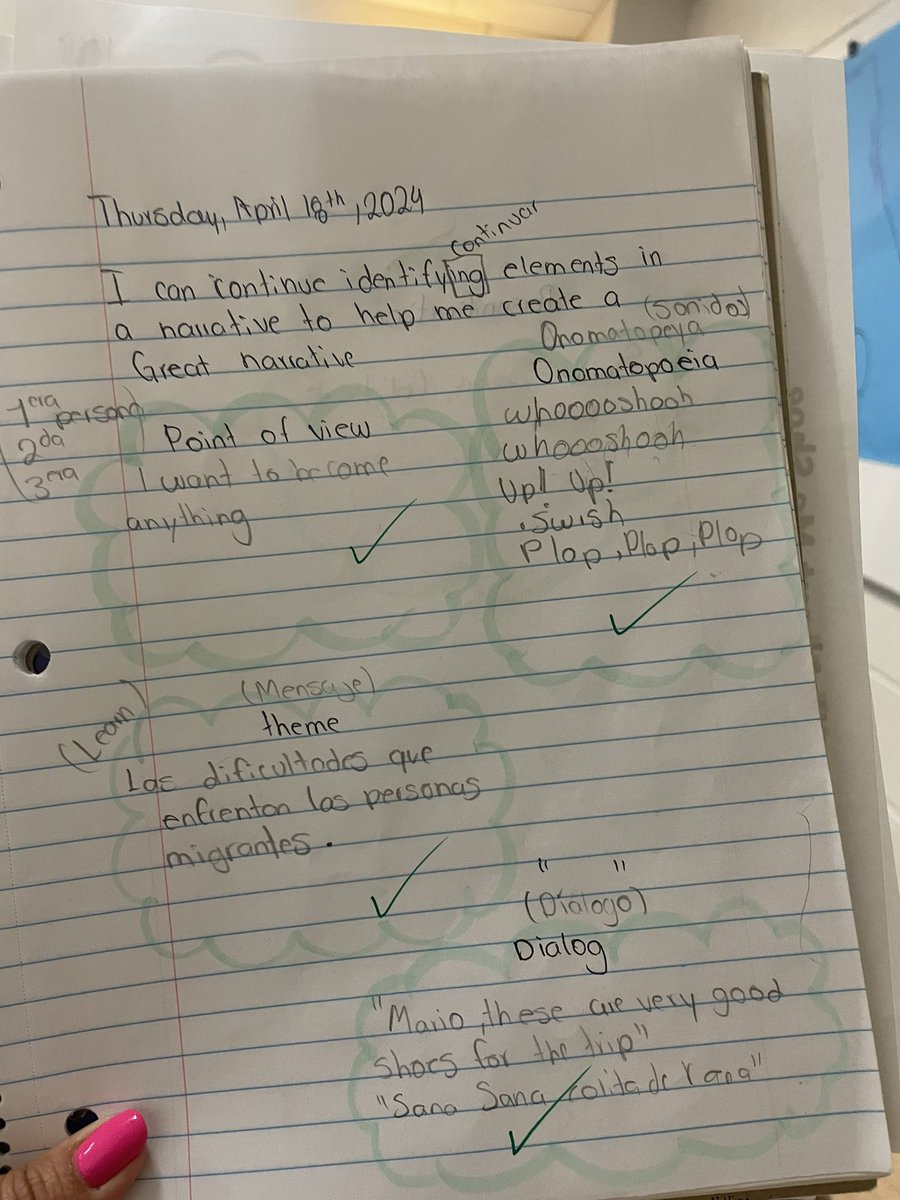 Thursday, April 18th, 2024
continuar
I can continue identifying elements in
a narrative to help me create a
Great narrative
(Sonidos)
Onomatopeya
Onomatopoeia
whooooshooh
whoooshooh
Up!! Up!
.Swish
Plop, Plop, Plop
1era persona
2da
3era
Point of view
I want to become
anything
(Learn)
(Mensaje)
theme
Las dificultades que
enfrentan las personas
migrantes.
" "
(Diálogo)
Dialog
"Mario, these are very good
shoes for the trip"
"Sana Sana colita de rana"